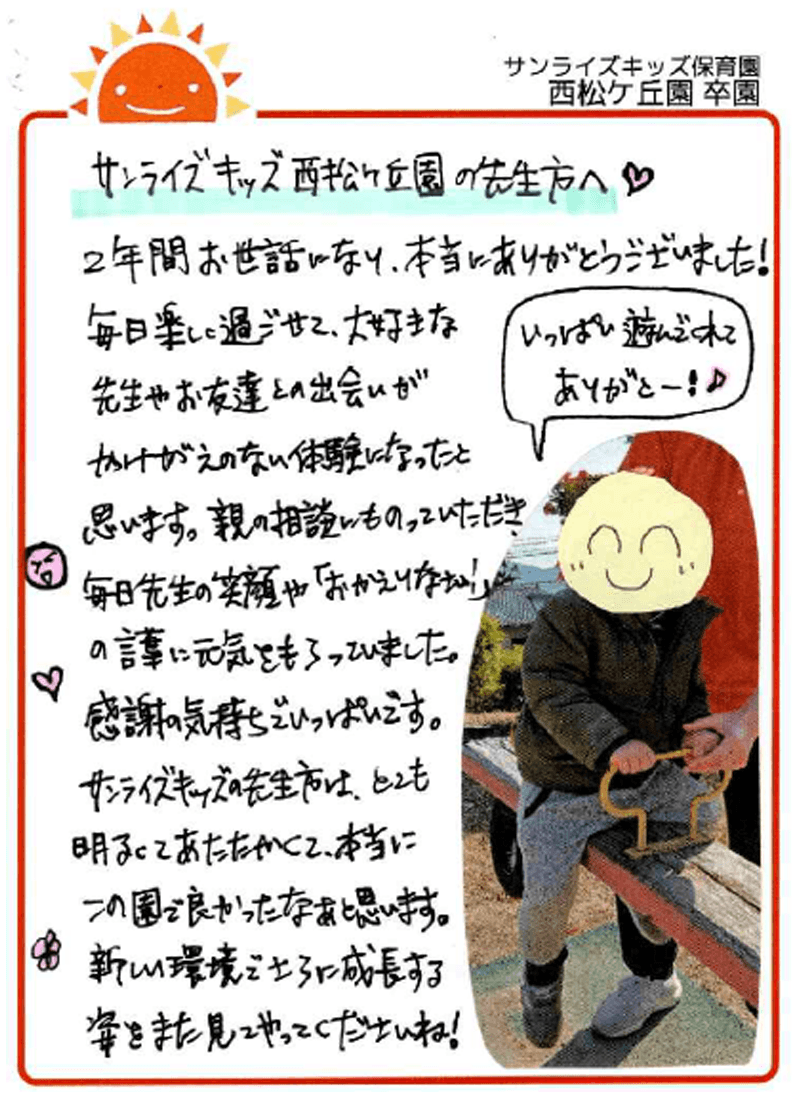 サンライズキッズ保育園
西松ケ丘園 卒園
サンライズキッズ西松ケ丘園の先生方へ
2年間お世話になり、本当にありがとうございました!
毎日楽しく過ごせて、大好きな
先生やお友達との出会いが
かけがえのない体験になったと
思います。親の相談にものっていただき、
毎日先生の笑顔や「おかえりなさい!」
の言葉に元気をもらっていました。
感謝の気持ちでいっぱいです。
サンライズキッズの先生方は、とても
明るくてあたたかくて、本当に
この園で良かったなぁと思います。
新しい環境でさらに成長する
姿をまた見てやってくださいね!
いっぱい遊んでくれて
ありがとー!♪